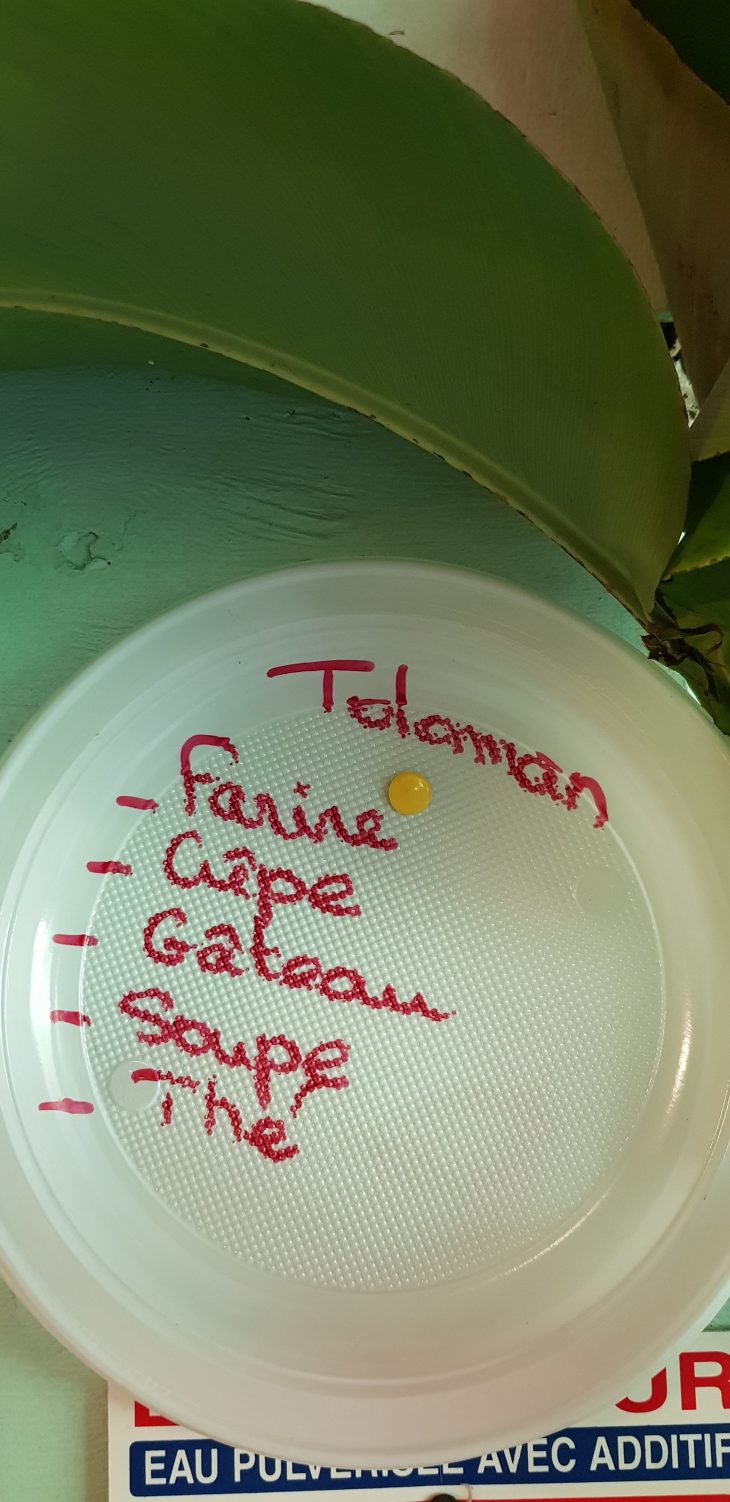 Toloman
- Farine
- Crêpe
- Gâteau
- Soupe
- Thé
EAU PULVÉRISÉE AVEC ADDITIF